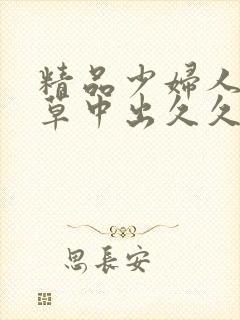 精品少婦人
草中出久久
思長安